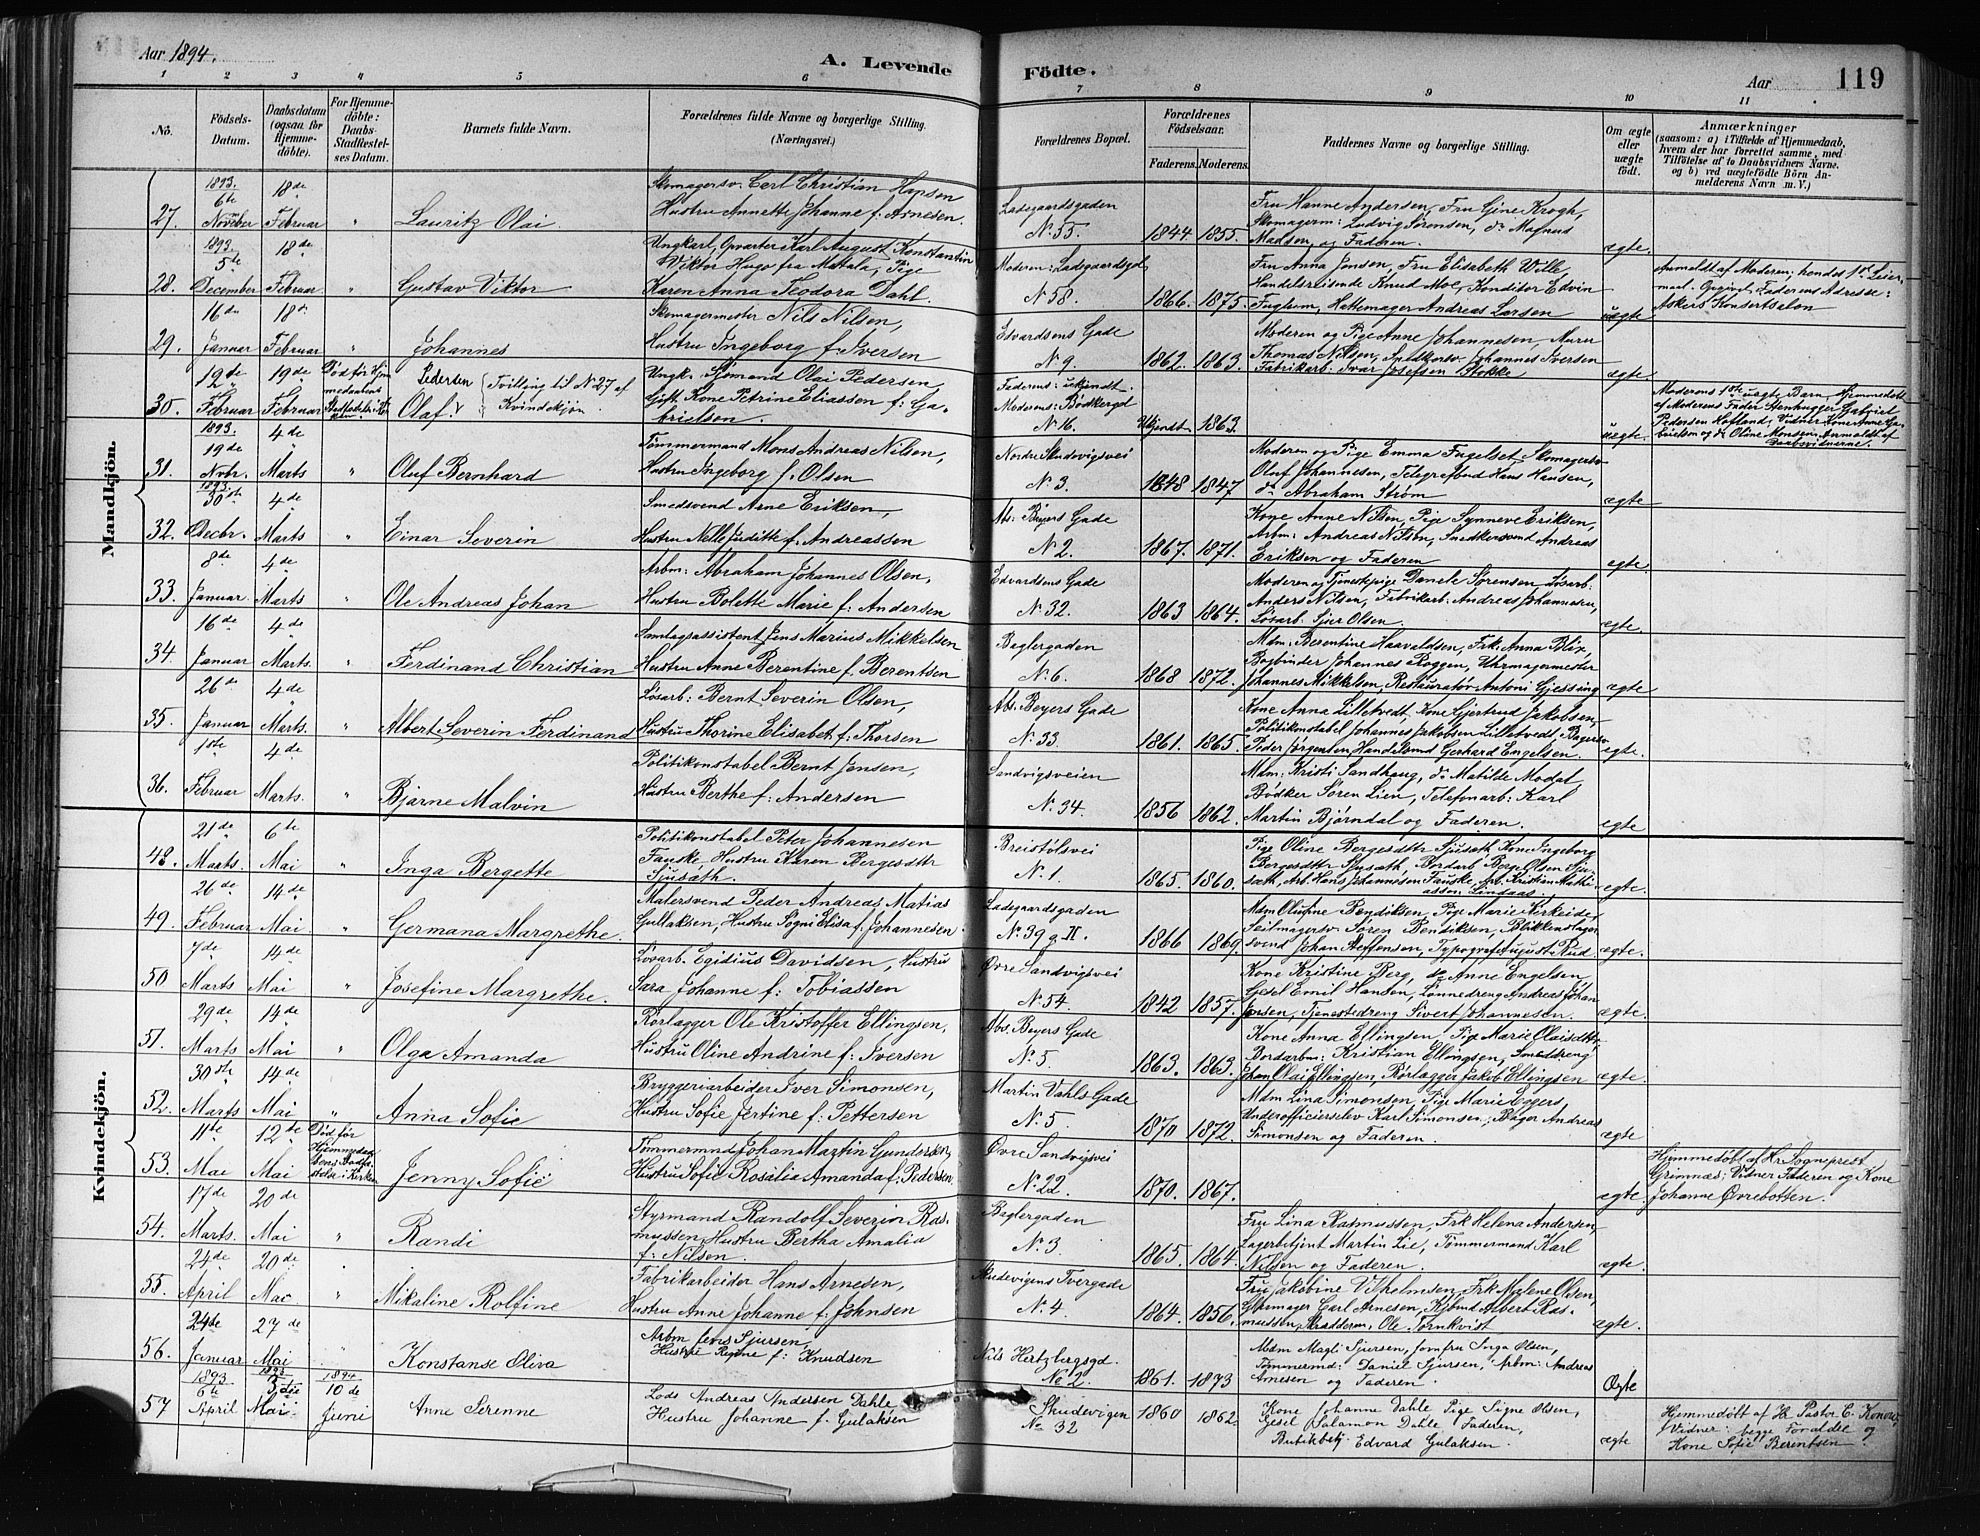 Aar 1894.
A. Levende Födte.
Aar
119
1 2 3 4 5 6 7 8 9 10 11
No. Födsels-Datum. Daabsdatum (ogsaa for Hjemme-döbte). For Hjemme-döbte: Daabs-Stadfæstel-ses Datum. Barnets fulde Navn. Forældrenes fulde Navne og borgerlige Stilling. (Næringsvei.) Forældrenes Bopæl. Forældrenes Födselsaar. Faderens. Moderens. Faddernes Navne og borgerlige Stilling. Om ægte eller uægte födt. Anmærkninger (saasom: a) i Tilfælde af Hjemmedaab, hvem der har forrettet samme, med Tilföielse af to Daabsvidners Navne. og b) ved uægtefödte Börn An-melderens Navn m. V.)
Mandkjön.
27. 1893. 6te November 18de Februar " Lauritz Olai
Skomagersv. Carl Christian Hansen
Hustru Annette Johanne f: Arnesen.
Ladegaardsgaden N: 55. 1844. 1855.
Fru Hanne Andersen, Fru Gine Krogh,
Skomagerm: Ludvig Sørensen, do Magnus
Madsen, og Faderen. ægte
28. 1893. 5te December 18de Februar " Gustav Viktor
Ungkarl, Karl August Konstantin
Viktor Hugo fra Motala, Pige
Karen Anna Teodora Dahl.
Moderen: Ladegaardsgd. N: 58. 1866. 1875.
Fru Anna Jensen, Fru Elisabeth Wille,
Handelsreisende Knud Moe, Konditor Edvin
Fuglem, Hattemager Andreas Larsen uægte
Anmeldt af Moderen; hendes 1ste Leier-
maal. Opgivet Faderens Adresse:
Askers Konsertsalon
29. 16de Januar 18de Februar " Johannes
Skomagermester Nils Nilsen,
Hustru Ingeborg f: Iversen
Edvardsens Gade N: 9. 1862. 1863.
Moderen og Pige Anne Johannesen, Murer
Thomas Nilsen, Snedkersv. Johannes Iversen
Fabrikarb. Ivar Josefsen Blokke ægte.
30. 19de Februar 19de Februar Død før Hjem-medaabens Stadfæstelse i Kirken. Pedersen Olaf { Tvilling til N: 27 af Kvindekjøn.
Ungk. Sjømand Olai Pedersen
Gift Kone Petrine Eliassen f: Ga-
brielsen.
Faderens: ukjendt. Moderens: Bødkergd N: 16. Ukjendt 1863. uægte.
Moderens 1ste uægte Barn, Hjemmedøbt
af Moderens Fader Stenhugger Gabriel
Pedersen Hofland, Vidner Kone Anne Ga-
brielsen og do Oline Monsen. Anmeldt af
Daabsvidnerne.
31. 1893. 19de Novbr. 4de Marts " Oluf Bernhard
Tømmermand Mons Andreas Nilsen,
Hustru Ingeborg f: Olsen
Nordre Skudevigsvei N: 3. 1848 1847
Moderen og Pige Emma Fugelset, Skomagersv.
Oluf Johannesen, Telegrafbud Hans Hansen,
do Abraham Strøm ægte
32. 1893. 30te Decbr. 4de Marts " Einar Severin
Smedsvend Arne Eriksen,
Hustru Nelle Juditte f: Andreassen
Abs: Beyers Gade N: 2. 1867. 1871.
Kone Anne Nilsen, Pige Synneve Eriksen,
Arbm: Andreas Nilsen, Snedkersvend Andreas
Eriksen og Faderen ægte.
33. 8de Januar. 4de Marts " Ole Andreas Johan
Arbm: Abraham Johannes Olsen,
Hustru Bolette Marie f: Andersen
Edvardsens Gade N: 32. 1863 1864.
Moderen og Tjenestepige Danele Sørensen, Løsarb.
Anders Nilsen, Fabrikarb: Andreas Johannesen,
Løsarb. Sjur Olsen. ægte.
34. 16de Januar 4de Marts. " Ferdinand Christian
Samlagsassistent Jens Marius Mikkelsen
Hustru Anne Berentine f: Berentsen
Baglergaden N: 6. 1868 1872.
Mdm: Berentine Haavaldsen, Frk: Anna Blix,
Bogbinder Johannes Roggen, Uhrmagermester
Johannes Mikkelsen, Restauratør Antoni Gjessing ægte
35. 26de Januar 4de Marts. " Albert Severin Ferdinand
Løsarb: Bernt Severin Olsen,
Hustru Thorine Elisabet f: Thorsen
Abs: Beyers Gade N: 33. 1861. 1865.
Kone Anna Lilletvedt, Kone Gjertrud Jakobsen,
Politikonstabel Johannes Jakobsen Lilletvedt, Bagersv.
Peder Jørgensen, Handelsbud Gerhard Engelsen. ægte.
36. 1ste Februar 4de Marts. " Bjarne Malvin
Politikonstabel Bernt Jensen,
Hustru Berthe f: Andersen
Sandvigsveien N: 34. 1856 1862.
Mdm: Kristi Sandhaug, do Matilde Modal
Bødker Søren Lien, Telefonarb: Karl
Martin Bjørndal og Faderen. ægte
Kvindekjön.
48. 21de Marts. 6te Mai " Inga Bergette
Politikonstabel Peter Johannesen
Fauske, Hustru Karen Bergesdttr
Sjusæth.
Breistølsvei N: 1. 1865. 1860.
Pige Oline Bergesdttr Sjusæth, Kone Ingeborg
Bergesdttr Sjusæth, Bordarb. Berge Olsen Sju-
sæth, Arb. Hans Johannesen Fauske, Arb. Kristian Mathi-
assen Lindaas. ægte.
49. 26de Februar 14de Mai " Germana Margrethe.
Malersvend Peder Andreas Matias
Gullaksen, Hustru Signi Elisa f: Johannesen
Ladegaardsgaden N: 39 g II. 1866 1869.
Mdm Olufine Bendiksen, Pige Marie Kirkeide,
Seilmagersv. Søren Bendiksen, Blikkenslager-
svend Johan Steffensen, Typograf August Rud ægte.
50 7de Marts 14de Mai " Josefine Margrethe.
Løsarb. Egidius Davidsen, Hustru
Sara Johanne f: Tobiassen
Øvre Sandvigsvei N: 54. 1842 1857.
Kone Kristine Berg, do Anne Engelsen,
Gesel Emil Hansen, Lønnedreng Andreas Johan
Jensen, Tjenestedreng Sivert Johannesen. ægte.
51. 29de Marts 14de Mai " Olga Amanda
Rørlægger Ole Kristoffer Ellingsen,
Hustru Oline Andrine f: Iversen
Abs. Beyers Gade N: 5. 1863. 1863.
Kone Anna Ellingsen, Pige Marie Olaisdttr,
Bordarbm: Kristian Ellingsen, Smeddreng
Johan Olai Ellingsen, Rørlægger Jakob Ellingsen ægte.
52. 30te Marts 14de Mai " Anna Sofie
Bryggeriarbeider Iver Simonsen,
Hustru Sofie Jertine f: Pettersen
Martin Vahls Gade N: 5. 1870 1872.
Mdm Lina Simonsen, Pige Marie Eggers,
Underofficierselev Karl Simonsen, Bager Andreas
Simonsen og Faderen. ægte
53. 11te Mai 12de Mai Død før Hjemmedaa-bens Stadfæ-stelse i Kirken Jenny Sofie
Tømmermnd Johan Martin Gundersen,
Hustru Sofie Rosalia Amanda f: Pedersen
Øvre Sandvigsvei N: 22. 1870. 1867. ægte
Hjemmedøbt af Hr Sogneprest
Grimnæs; Vidner Faderen og Kone
Johanne Øvrebotsen.
54. 17de Marts. 20de Mai " Randi
Styrmand Randolf Severin Ras-
mussen, Hustru Bertha Amalia
f: Nilsen.
Baglergaden N: 3. 1865. 1864.
Fru Lina Rasmussen, Frk Helena Andersen,
Lagerbetjent Martin Lie, Tømmermand Karl
Nilsen og Faderen. ægte.
55. 24de April 20de Mai " Mikaline Rolfine
Fabrikarbeider Hans Arnesen,
Hustru Anne Johanne f: Johnsen
Skudevigens Tvergade N: 4. 1864. 1856.
Fru Jaksbine Vilhelmsen, Frk Malene Olsen,
Carl Arnesen, Albert Ras-
mussen, Skrædderm. Ole Tørnkvist ægte.
56. 24de Januar 27de Mai " Konstanse Oliva
Arbm Jens Sjursen,
Hustru Regine f: Knudsen
Nils Hertzbergsgd. No 2. 1861. 1873
Mdm Magli Sjursen, Jomfru Inga Olsen,
Tømmermd: Daniel Sjursen, Arbm: Andreas
Arnesen og Faderen. Ægte
57 1893 6te April 1893 3die Mai 1894 10de Juni Anne Serenne
Lods Andreas Andersen Dahle
Hustru Johanne f. Gulaksen
Skudevigen No 32 1860 1862.
Kone Johanne Dahle, Pige Signe Olsen,
Gesel Salamon Dahle, Faderen,
Butikbetj. Edvard Gulaksen. ægte
Hjemmedøbt af Hr Pastor C. Konow,
Vidner: begge Forældre og
Kone Sofie Berentsen.